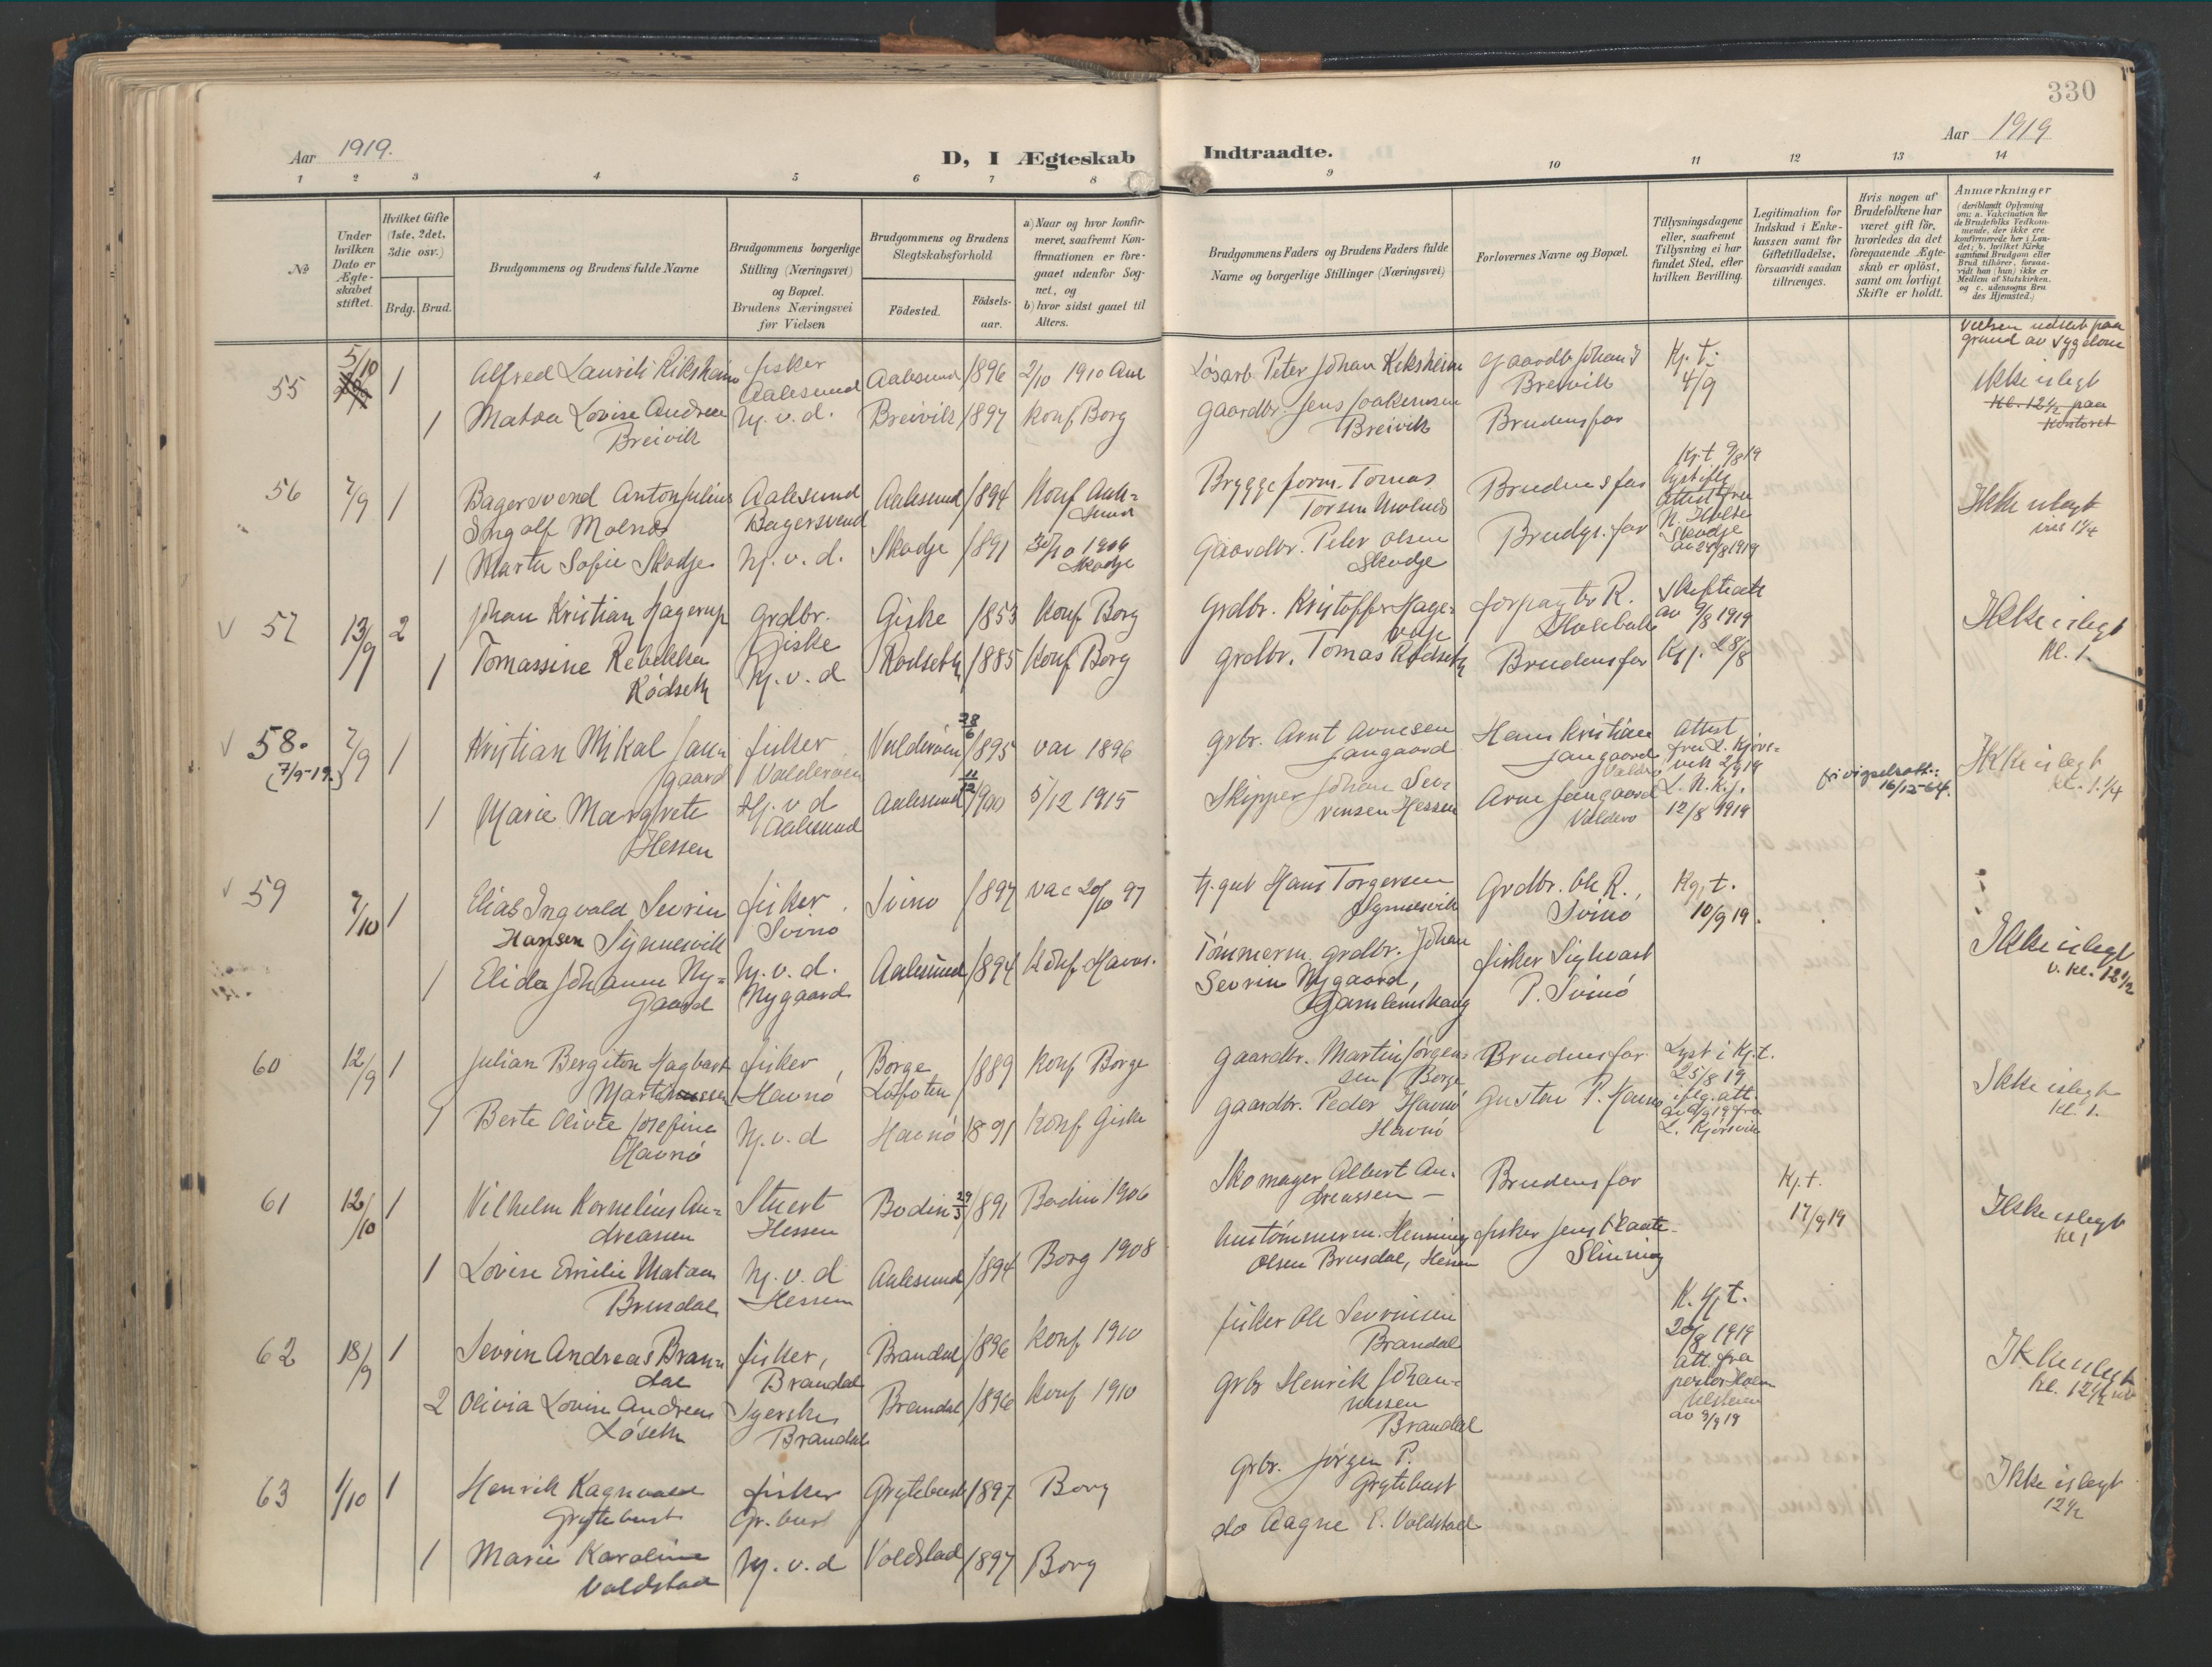 330
Aar 1919.
D, I Ægteskab
Indtraadte.
Aar 1919
1 2 3 4 5 6 7 8 9 10 11 12 13 14
No
Under
hvilken
Dato er
Ægte-
skabet
stiftet.
Hvilket Gifte
(1ste, 2det,
3die osv.)
Brdg. Brud.
Brudgommens og Brudens fulde Navne
Brudgommens borgerlige
Stilling (Næringsvei)
og Bopæl.
Brudens Næringsvei
før Vielsen
Brudgommens og Brudens
Slegtskabsforhold
Födested.
Födsels-
aar.
a) Naar og hvor konfir-
meret, saafremt Kon-
firmationen er fore-
gaaet udenfor Sog-
net, og
b) hvor sidst gaaet til
Alters.
Brudgommens Faders og Brudens Faders fulde
Navne og borgerlige Stillinger (Næringsvei)
Forlovernes Navne og Bopæl.
Tillysningsdagene
eller, saafremt
Tillysning ei har
fundet Sted, efter
hvilken Bevilling.
Legitimation for
Indskud i Enke-
kassen samt for
Giftetilladelse,
forsaavidt saadan
tiltrænges.
Hvis nogen af
Brudefolkene har
været gift för,
hvorledes da det
foregaaende Ægte-
skab er oplöst,
samt om lovligt
Skifte er holdt.
Anmærkninger
(deriblandt Oplysning
om: a. Vakcination for
de Brudefolks Vedkom-
mende, der ikke ere
konfirmerede her i Lan-
det; b. hvilket Kirke
samfund Brudgom eller
Brud tilhörer, forsaa-
vidt han (hun) ikke er
Medlem af Statskirken,
og c. udensogns Bru
des Hjemsted.)
55 5/10 1 Alfred Laurits Kiksheim fisker
Aalesund Aalesund 1896 2/10 1910 Aal
Løsarb. Peter Johan Kiksheim Gaardb. Johan J
Breivik Kj. t.
4/9
Vielsen udsat paa
grund av sygdom
Ikke islegt
Kl. 12½ paa
Kontoret
1 Matea Lovise Andrea
Breivik hj. v. d. Breivik 1897 Konf Borg
Gaardbr. Jens Joakimsen
Breivik Brudens far
56 7/9 1 Bagersvend Anton Julius
Ingolf Molnes Aalesund
Bagersvend Aalesund 1894 Konf Aale-
sund
Bryggeform. Tomas
Torsen Molnes Brudens far Kj. t. 9/8 19
Lyst iflg
attest fra
Skodje
av 24/8 1919
Ikke islegt
1 Marta Sofie Skodje hj. v. d. Skodje 1891 30/10 1904
Skodje
Gaardbr. Peter Olsen
Skodje Brudgs. far
57 13/9 2 Johan Kristian Hagerup grdbr.
Giske Giske 1853 Konf Borg
Grdbr. Kristoffer Hage- forpagter R. Skifteatt
av 9/8 1919
Kj. 28/8
Ikke islegt
Kl. 1.
1 Tomassine Rebekka
Rødseth hj. v. d Rødseth 1885 Konf Borg
grdbr. Tomas Rødseth Brudens far
58. 7/9 1
(7/9-19.) Kristian Mikal Jan-
gaard fisker
Valderøen Valderøen 28/6 1895 vac 1896
grbr. Arnt Arnesen
Jangaard Hans Kristian
Jangaard
Valderø attest
fra L. Kjørs-
vik 2/9 19
L. N. Kj.
12/8 1919
fri vigselsatt.:
16/12-64.
Ikke islegt
kl. 1.¼
1 Marie Margrete
Hessen Hj. v d
Aalesund Aalesund 11/12 1900 5/12 1915
Skipper Johan Sev-
rinsen Hessen Arne Jangaard
Valderø
59 7/10 1 Elias Ingvald Sevrin
Hansen Synnesvik fisker
Svinø Svinø 1897 vac 20/10 97
Hans Torgersen
Synnesvik Grdbr. Ole R.
Svinø Kj. t.
10/9 19.
Ikke islegt
v. kl. 12½
1 Elida Johanne Ny-
gaard hj. v. d.
Nygaard Aalesund 1894 Konf.
Tømmerm. grdbr. Johan
Sevrin Nygaard,
Gamlemshaug fisker Sighvart
P. Svinø
60 12/9 1 Julian Bergiton Hagbart
Martinussen fisker
Havnö Borge
Lofoten 1889 Konf Borge
gaardbr. Martin Jørgen-
sen Borge Brudens far Lyst i Kj. t.
25/8 19
iflg. att.
av 9/9 19 fra
L. Kjørsvik
Ikke islegt
Kl. 1.
1 Berte Olivie Josefine
Havnö hj. v. d Havnö 1891 Konf Giske
gaardbr. Peder Havnö
Havnö Gustav P. Havnö
61 12/10 1 Vilhelm Kornelius An-
dreassen Stuert
Hessen Bodin 29/3 1891 Bodin 1906
Skomager Albert An-
dreassen – Brudens far Kj. t.
17/9 19
Ikke islegt
kl 1
1 Lovise Emilie Matea
Brusdal hj. v. d
Hessen Aalesund 1894 Borg 1908
hustømmerm. Henning
Olsen Brusdal, Hessen fisker Jens Klaate-
Slining
62 18/9 1 Sevrin Andreas Bran-
dal fisker,
Brandal Brandal 1896 Konf 1910
fisker Ole Sevrinsen
Brandal K. Kj. t.
20/8 1919
att. fra
pastor Holm
Ulstein
av 9/9 19
Ikke islegt
kl. 12½
2 Olivia Lovise Andrea
Løseth Syerske
Brandal Brandal 1896 Konf 1910
grbr Henrik Johan-
nessen
Brandal
63 1/10 1 Henrik Ragnvald
Grytebust fisker
Gr. bust Grytebust 1897 Borg
Grbr. Jørgen P.
Grytebust
Ikke islegt
12½
1 Marie Karoline
Valdstad hj. v. d Valdstad 1897 Borg
do Aagne P. Valdstad